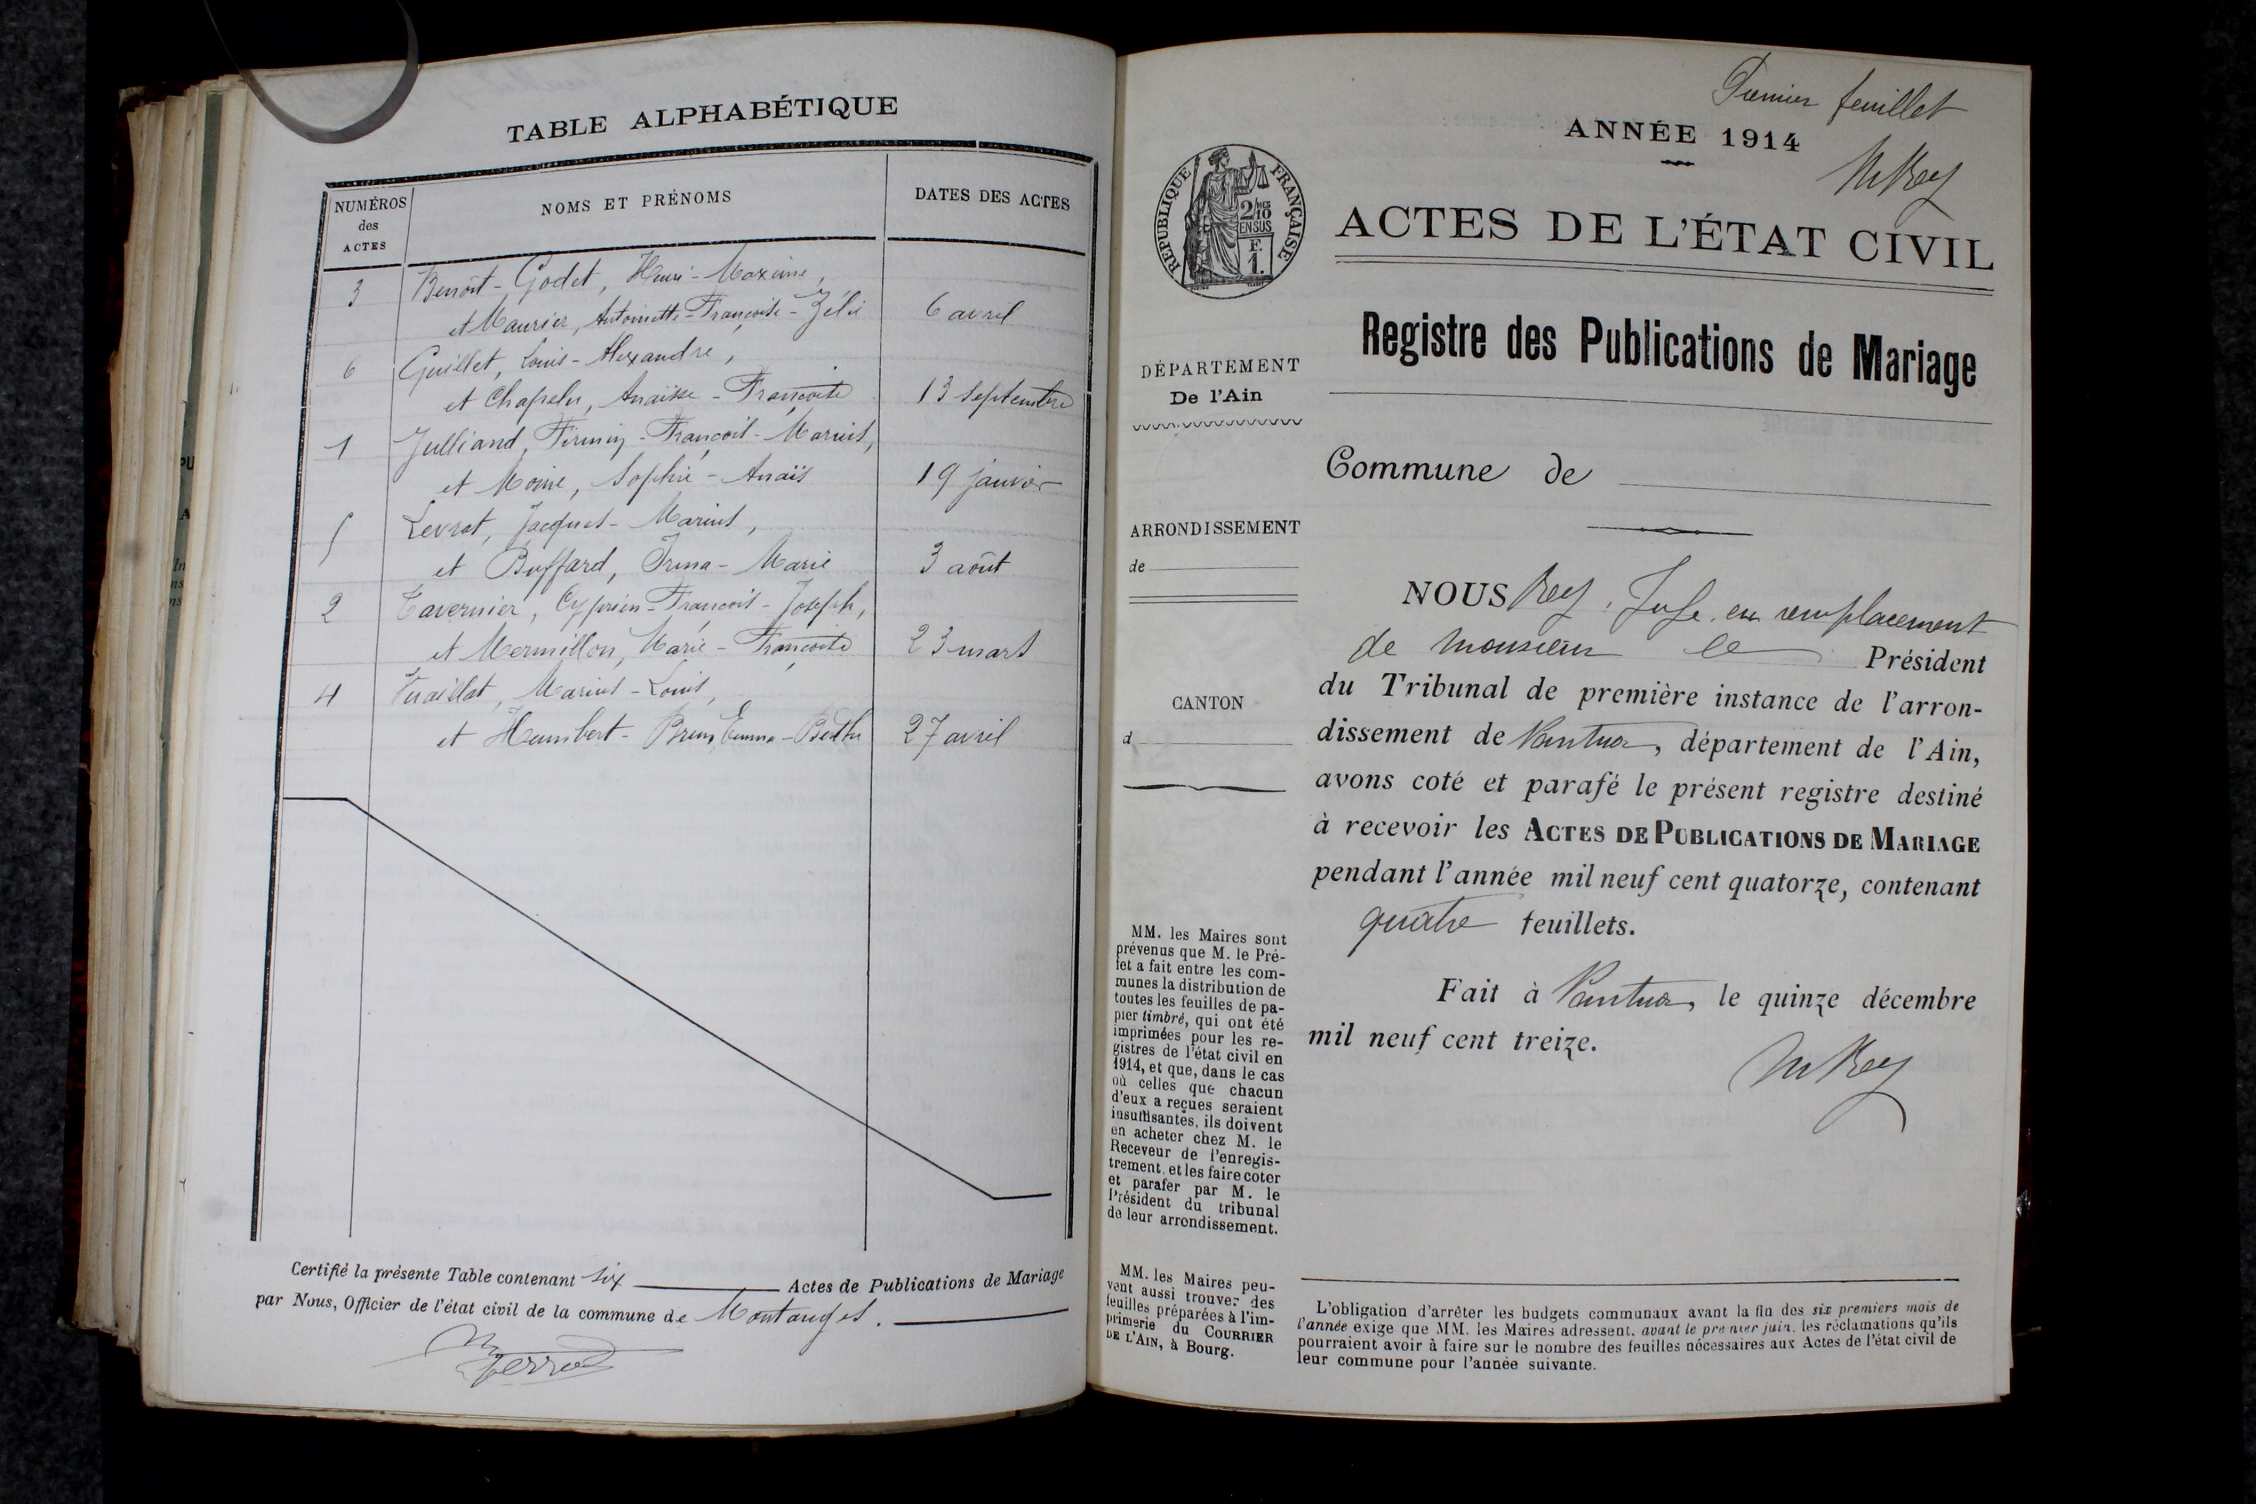 TABLE ALPHABÉTIQUE
NUMÉROS
des
ACTES
NOMS ET PRÉNOMS
DATES DES ACTES
3 Benoît-Godet, Henri-Maxime,
et Maurier, Antoinette-Françoise-Zélie 6 avril
6 Guillet, Louis-Alexandre,
et Chapelu, Anaïsse-Françoise 13 septembre
1 Julliand, Firmin-François-Marius,
et Moine, Sophie-Anaïs 19 janvier
5 Levrat, Jacques-Marius,
et Buffard, Irma-Marie 3 août
2 Tavernier, Cyprien-François-Joseph,
et Mermillon, Marie-Françoise 23 mars
4 Vuaillat, Marius-Louis,
et Humbert-Brun, Emma-Berthe 27 avril
Certifié la présente Table contenant six Actes de Publications de Mariage
par Nous, Officier de l'état civil de la commune de Montanges.
Premier feuillet
ANNÉE 1914
MRey
RÉPUBLIQUE FRANÇAISE
2/10
EN SUS
F.
1.
ACTES DE L'ÉTAT CIVIL
Registre des Publications de Mariage
DÉPARTEMENT
De l'Ain
Commune de
ARRONDISSEMENT
de
CANTON
d
NOUS Rey, Juge en remplacement
de monsieur le Président
du Tribunal de première instance de l'arron-
dissement de Nantua, département de l'Ain,
avons coté et parafé le présent registre destiné
à recevoir les ACTES DE PUBLICATIONS DE MARIAGE
pendant l'année mil neuf cent quatorze, contenant
quatre feuillets.
Fait à Nantua, le quinze décembre
mil neuf cent treize.
MRey
MM. les Maires sont
prévenus que M. le Pré-
fet a fait entre les com-
munes la distribution de
toutes les feuilles de pa-
pier timbré, qui ont été
imprimées pour les re-
gistres de l'état civil en
1914, et que, dans le cas
où celles que chacun
d'eux a reçues seraient
insuffisantes, ils doivent
en acheter chez M. le
Receveur de l'enregis-
trement, et les faire coter
et parafer par M. le
Président du tribunal
de leur arrondissement.
MM. les Maires peu-
vent aussi trouver des
feuilles préparées à l'im-
primerie du COURRIER
DE L'AIN, à Bourg.
L'obligation d'arrêter les budgets communaux avant la fin des six premiers mois de
l'année exige que MM. les Maires adressent, avant le premier juin, les réclamations qu'ils
pourraient avoir à faire sur le nombre des feuilles nécessaires aux Actes de l'état civil de
leur commune pour l'année suivante.